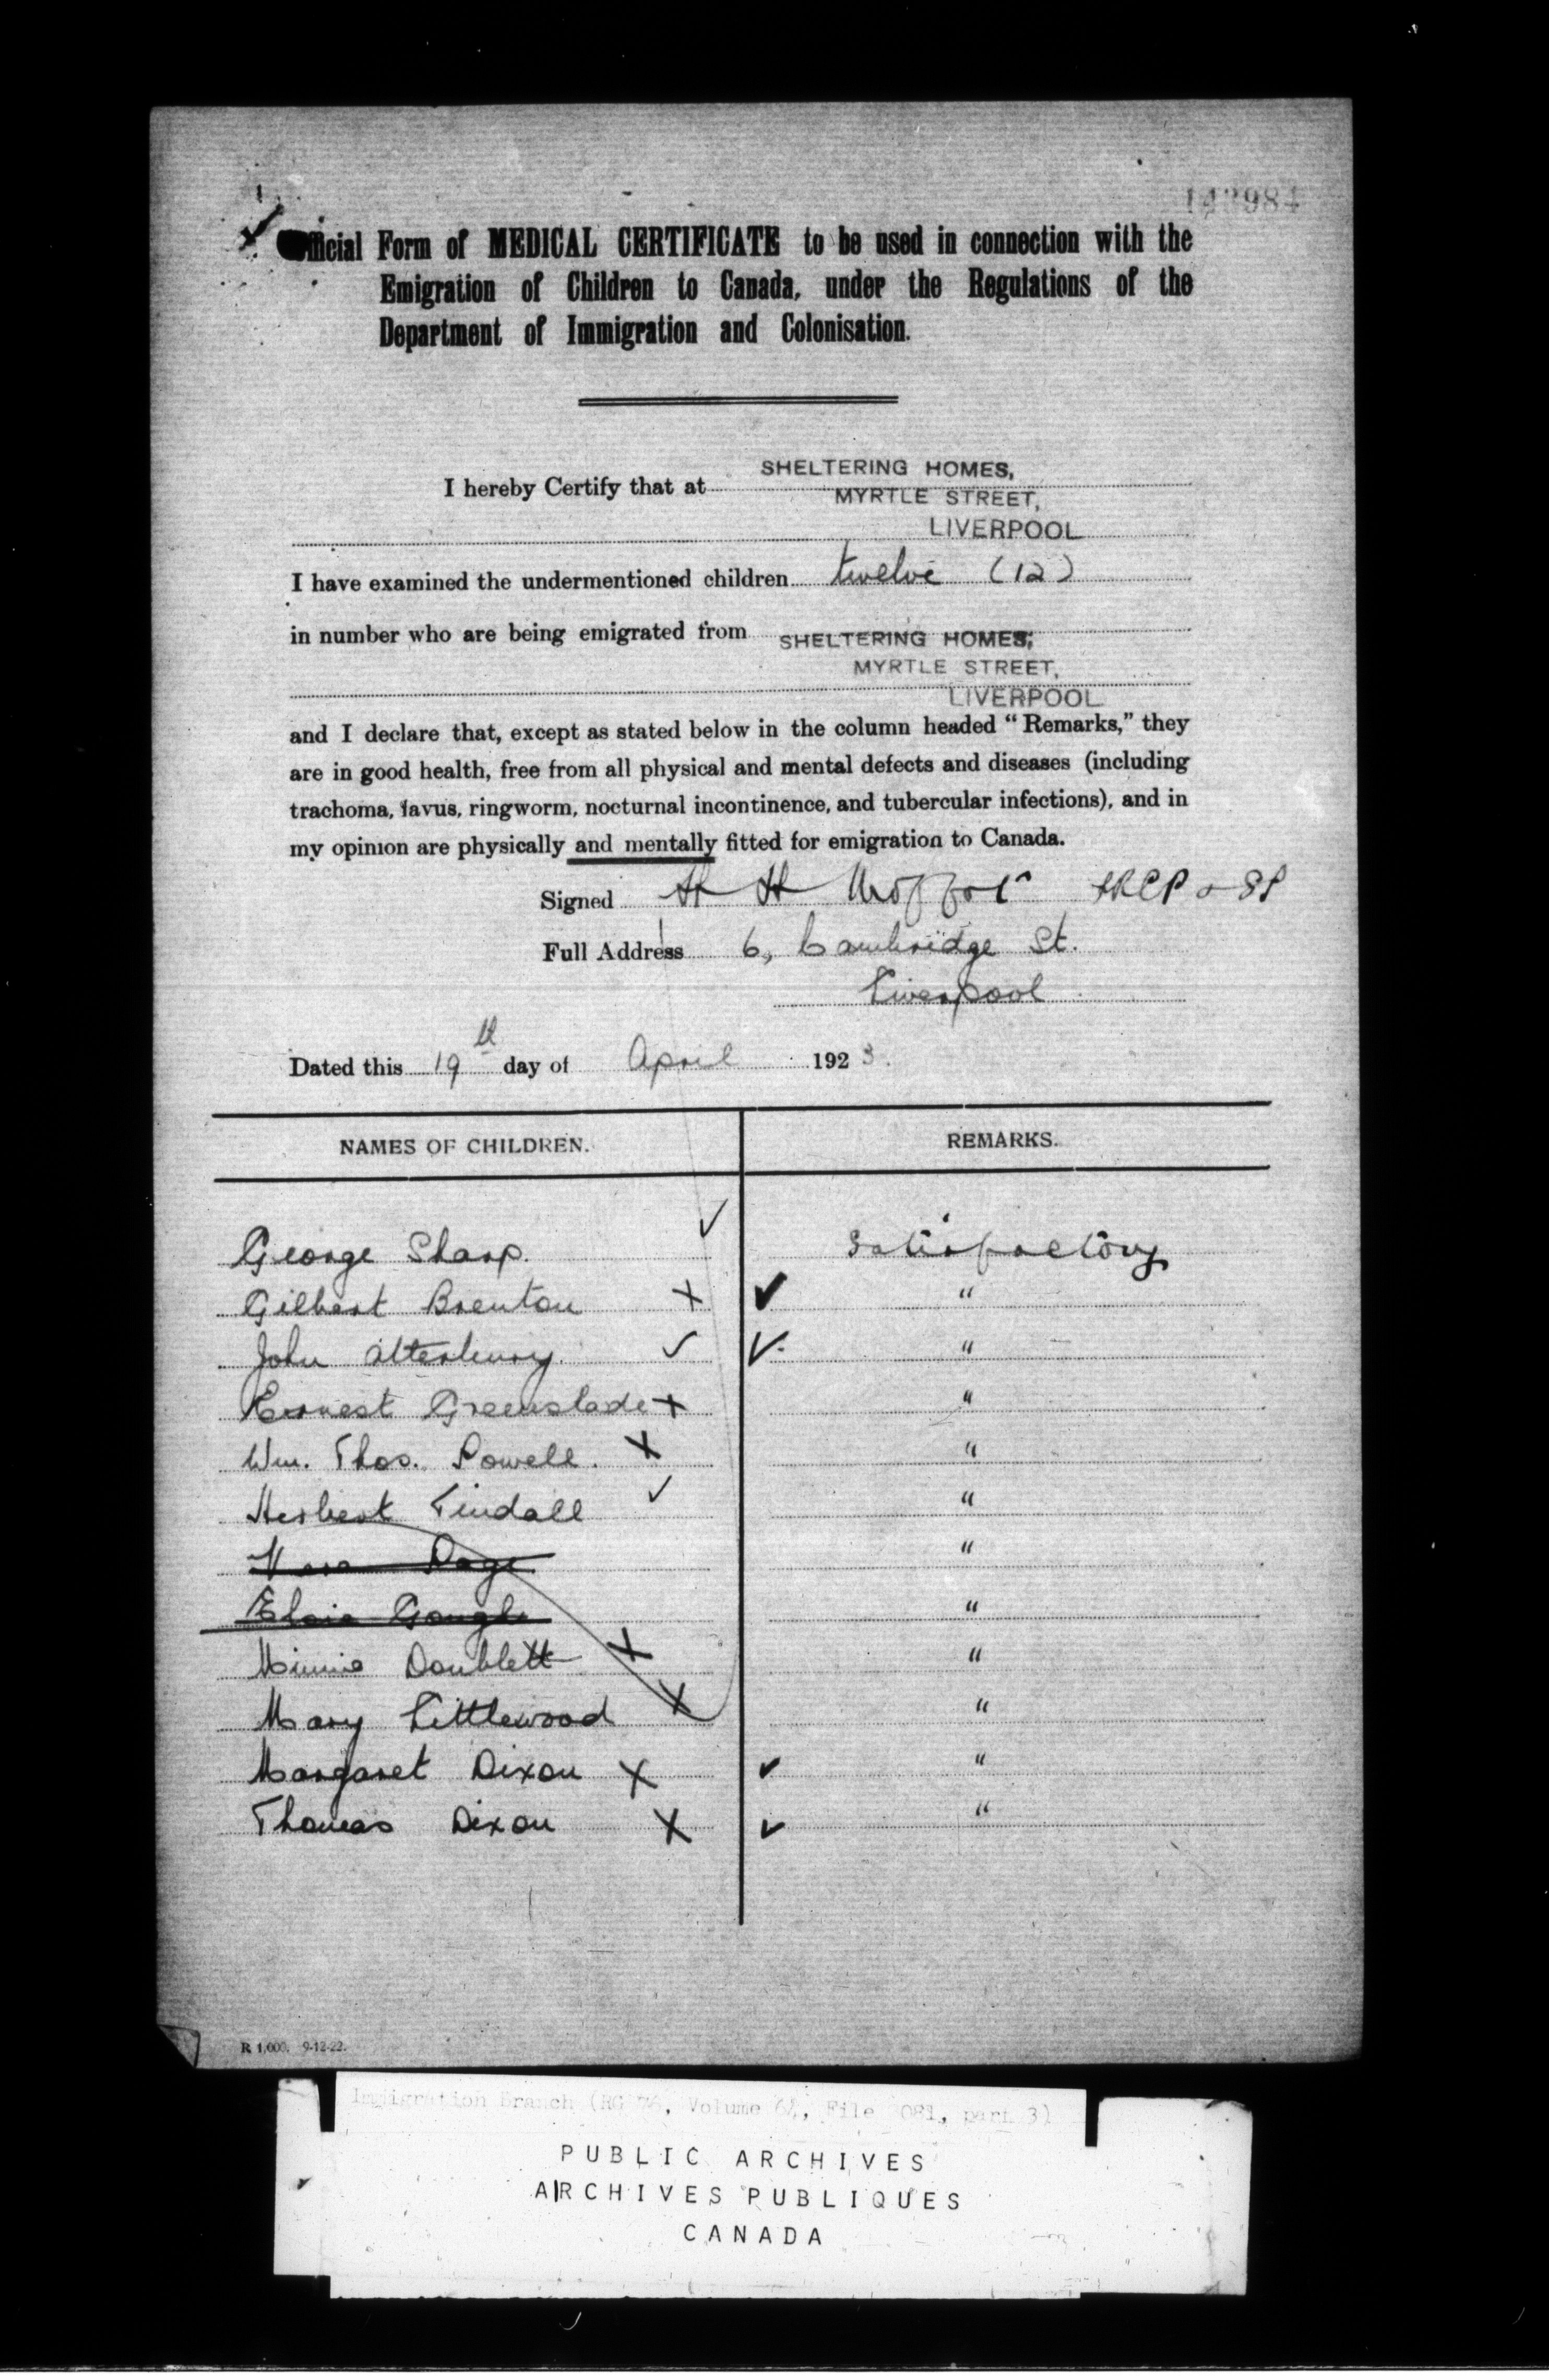 Official Form of MEDICAL CERTIFICATE to be used in connection with the
Emigration of Children to Canada, under the Regulations of the
Department of Immigration and Colonisation.
SHELTERING HOMES,
I hereby Certify that at
MYRTLE STREET,
LIVERPOOL
I have examined the undermentioned children twelve (12)
in number who are being emigrated from SHELTERING HOMES,
MYRTLE STREET,
LIVERPOOL
and I declare that, except as stated below in the column headed “Remarks,” they
are in good health, free from all physical and mental defects and diseases (including
trachoma, favus, ringworm, nocturnal incontinence, and tubercular infections), and in
my opinion are physically and mentally fitted for emigration to Canada.
Signed H H Moffat LRCP & SS
Full Address 6, Cambridge St.
Liverpool
Dated this 19th day of April 1923.
NAMES OF CHILDREN. REMARKS.
George Sharp. ✓ Satisfactory
Gilbert Brenton X ✓ "
John Atterbury. ✓ ✓ "
Ernest Greenslade X "
Wm. Thos. Powell. X "
Herbert Tindall ✓ "
Page "
Elsie Gough "
Minnie Doublett X "
Mary Littlewood X "
Margaret Dixon X ✓ "
Thomas Dixon X ✓ "
R 1,000. 9-12-22.
Immigration Branch (RG 76, Volume 64, File 3081, part 3)
PUBLIC ARCHIVES
ARCHIVES PUBLIQUES
CANADA